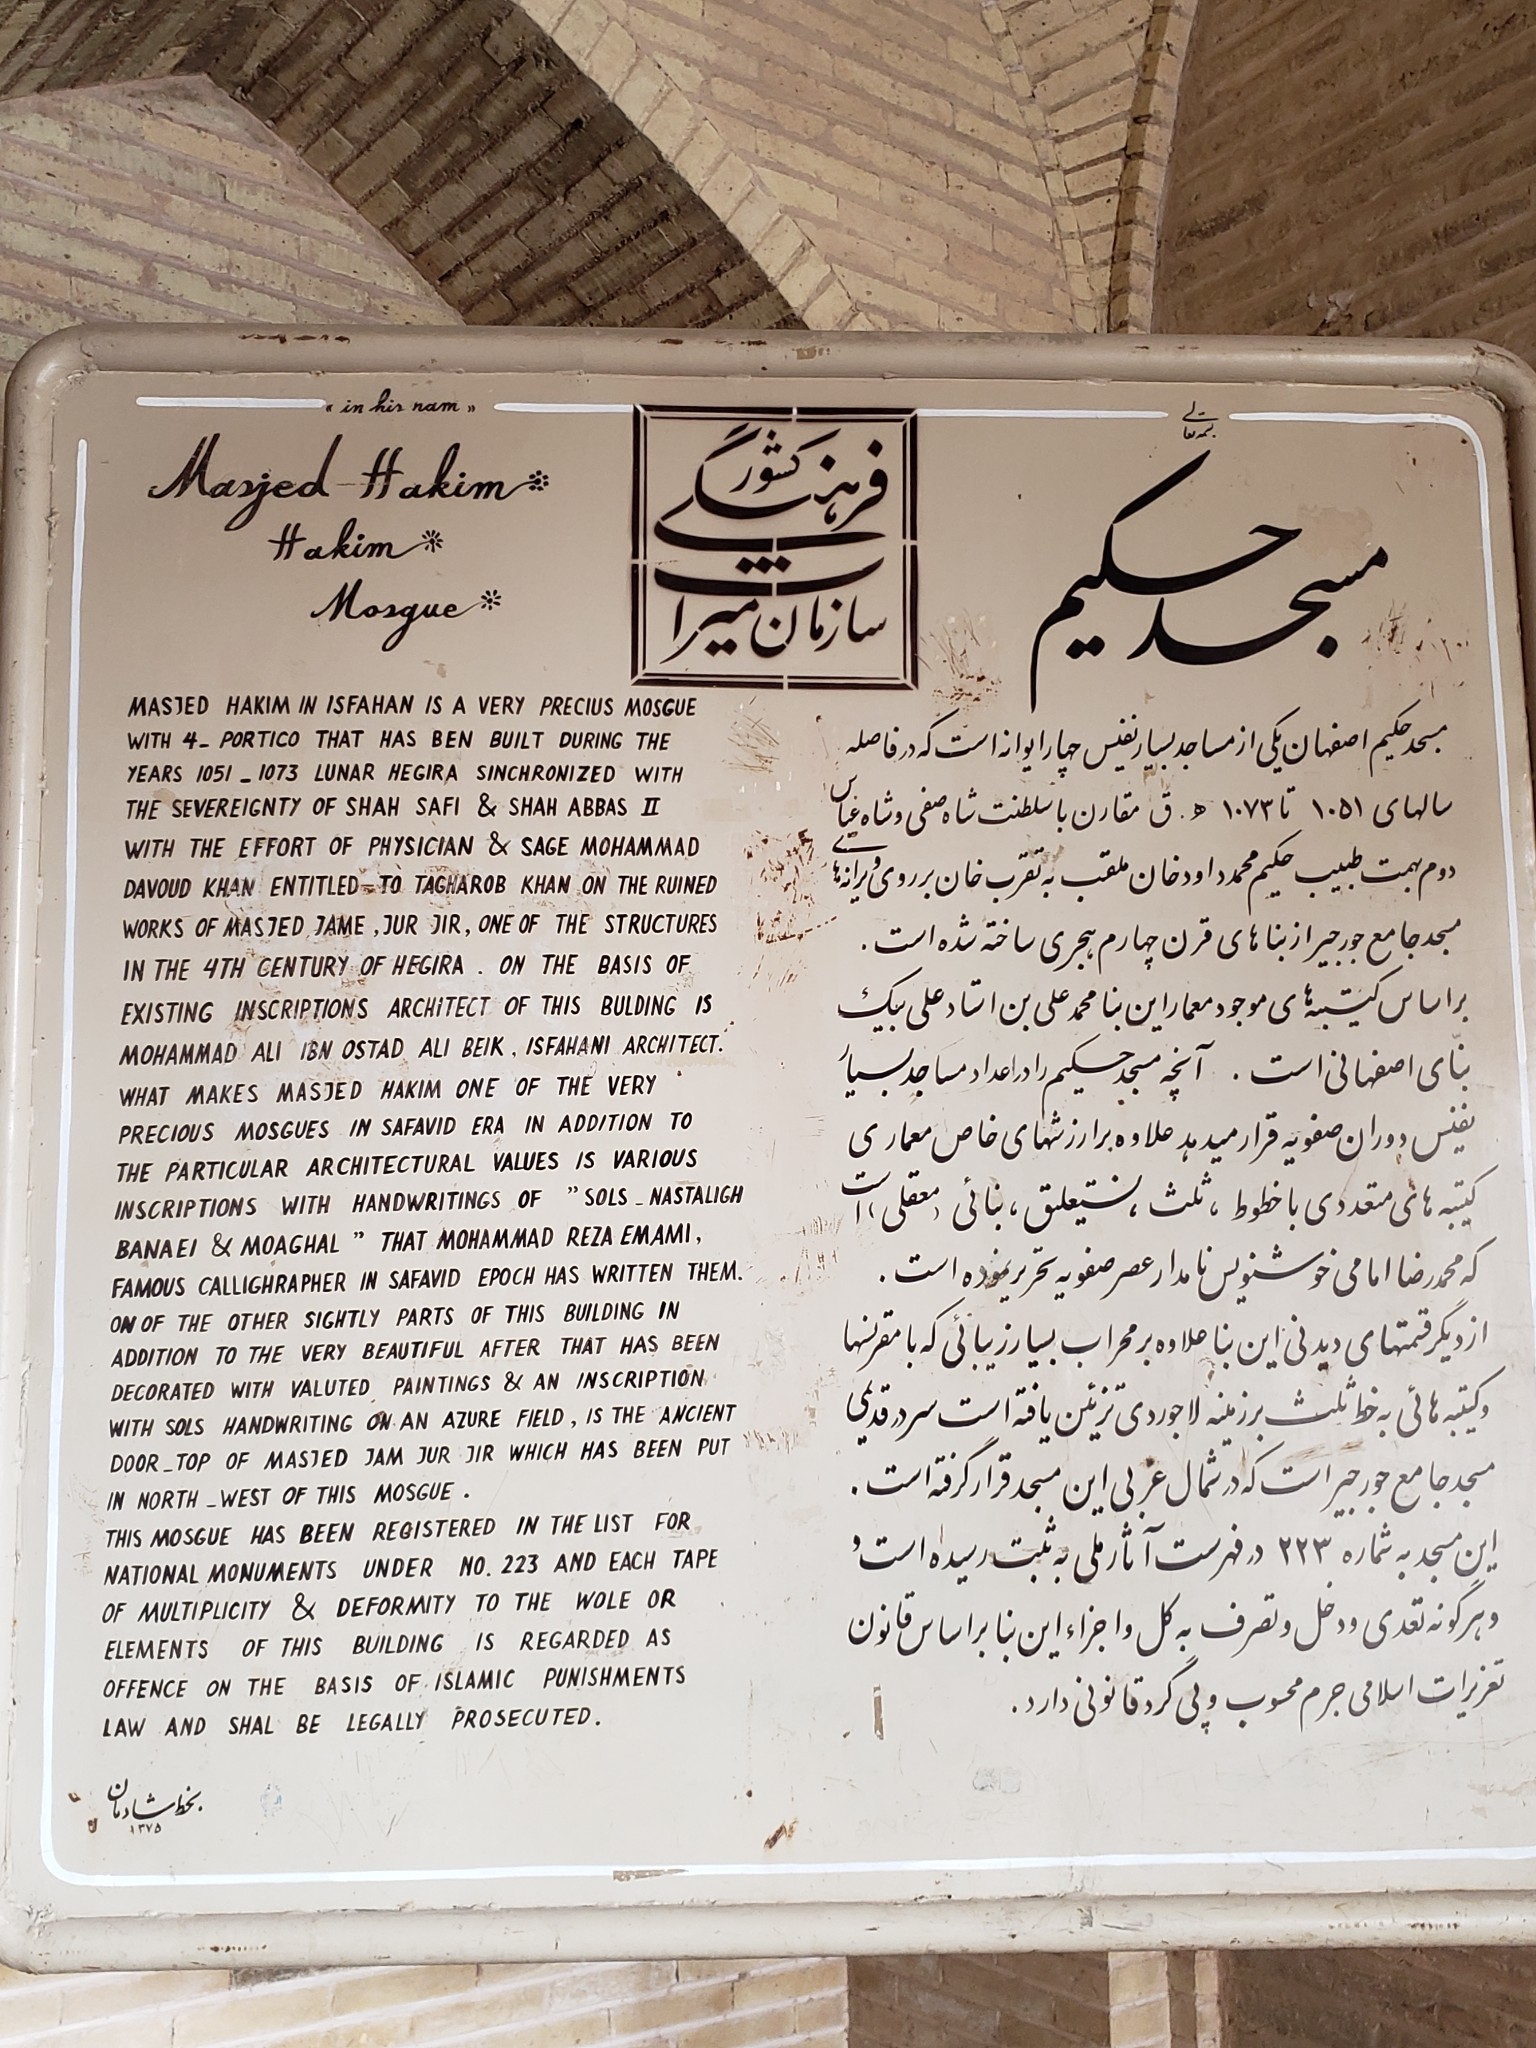 « in his nam »
Masjed Hakim
Hakim
Mosgue
MASJED HAKIM IN ISFAHAN IS A VERY PRECIUS MOSGUE
WITH 4_ PORTICO THAT HAS BEN BUILT DURING THE
YEARS 1051 _ 1073 LUNAR HEGIRA SINCHRONIZED WITH
THE SEVEREIGNTY OF SHAH SAFI & SHAH ABBAS II
WITH THE EFFORT OF PHYSICIAN & SAGE MOHAMMAD
DAVOUD KHAN ENTITLED_TO TAGHAROB KHAN ON THE RUINED
WORKS OF MASJED JAME , JUR JIR, ONE OF THE STRUCTURES
IN THE 4TH CENTURY OF HEGIRA . ON THE BASIS OF
EXISTING INSCRIPTIONS ARCHITECT OF THIS BULDING IS
MOHAMMAD ALI IBN OSTAD ALI BEIK , ISFAHANI ARCHITECT.
WHAT MAKES MASJED HAKIM ONE OF THE VERY
PRECIOUS MOSGUES IN SAFAVID ERA IN ADDITION TO
THE PARTICULAR ARCHITECTURAL VALUES IS VARIOUS
INSCRIPTIONS WITH HANDWRITINGS OF " SOLS _ NASTALIGH
BANAEI & MOAGHAL " THAT MOHAMMAD REZA EMAMI,
FAMOUS CALLIGHRAPHER IN SAFAVID EPOCH HAS WRITTEN THEM.
ON OF THE OTHER SIGHTLY PARTS OF THIS BUILDING IN
ADDITION TO THE VERY BEAUTIFUL AFTER THAT HAS BEEN
DECORATED WITH VALUTED PAINTINGS & AN INSCRIPTION
WITH SOLS HANDWRITING ON AN AZURE FIELD , IS THE ANCIENT
DOOR_TOP OF MASJED JAM JUR JIR WHICH HAS BEEN PUT
IN NORTH _WEST OF THIS MOSGUE .
THIS MOSGUE HAS BEEN REGISTERED IN THE LIST FOR
NATIONAL MONUMENTS UNDER NO. 223 AND EACH TAPE
OF MULTIPLICITY & DEFORMITY TO THE WOLE OR
ELEMENTS OF THIS BUILDING IS REGARDED AS
OFFENCE ON THE BASIS OF ISLAMIC PUNISHMENTS
LAW AND SHAL BE LEGALLY PROSECUTED.
بخط شادمان
۱۳۷۵
سازمان میراث
فرهنگی کشور
بسمه تعالی
مسجد حکیم
مسجد حکیم اصفهان یکی از مساجد بسیار نفیس چهار ایوانه است که در فاصله
سالهای ۱۰۵۱ تا ۱۰۷۳ ه . ق مقارن با سلطنت شاه صفی و شاه عباس
دوم بهمت طبیب حکیم محمد داود خان ملقب به تقرب خان بر روی ویرانه‌های
مسجد جامع جورجیر از بناهای قرن چهارم هجری ساخته شده است .
بر اساس کتیبه‌های موجود معمار این بنا محمد علی بن استاد علی بیک
بنّای اصفهانی است . آنچه مسجد حکیم را در اعداد مساجد بسیار
نفیس دوران صفویه قرار میدهد علاوه بر ارزشهای خاص معماری
کتیبه های متعددی با خطوط ، ثلث ، نستعلیق ، بنائی (معقلی) است
که محمد رضا امامی خوشنویس نامدار عصر صفویه تحریر نموده است .
از دیگر قسمتهای دیدنی این بنا علاوه بر محراب بسیار زیبائی که با مقرنسها
و کتیبه هائی به خط ثلث بر زمینه لاجوردی تزئین یافته است سر در قدیمی
مسجد جامع جورجیر است که در شمال غربی این مسجد قرار گرفته است .
این مسجد به شماره ۲۲۳ در فهرست آثار ملی به ثبت رسیده است و
و هرگونه تعدی و دخل و تصرف به کل و اجزاء این بنا بر اساس قانون
تعزیرات اسلامی جرم محسوب و پی گرد قانونی دارد .